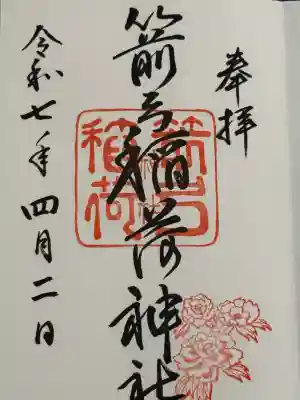 奉拝
箭弓稲荷神社
箭弓稲荷
令和七年四月二日